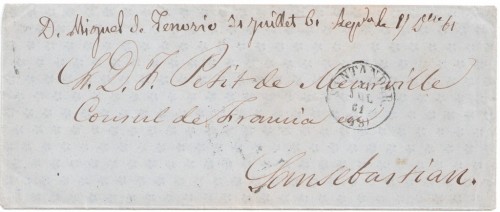 D. Miguel de Tenorio 31 juillet 61 Repda le 8/
A. D. F. Petit de Meurville
Consul de Francia en
Sansebastian.
SANTANDER
JUL
61
(18)